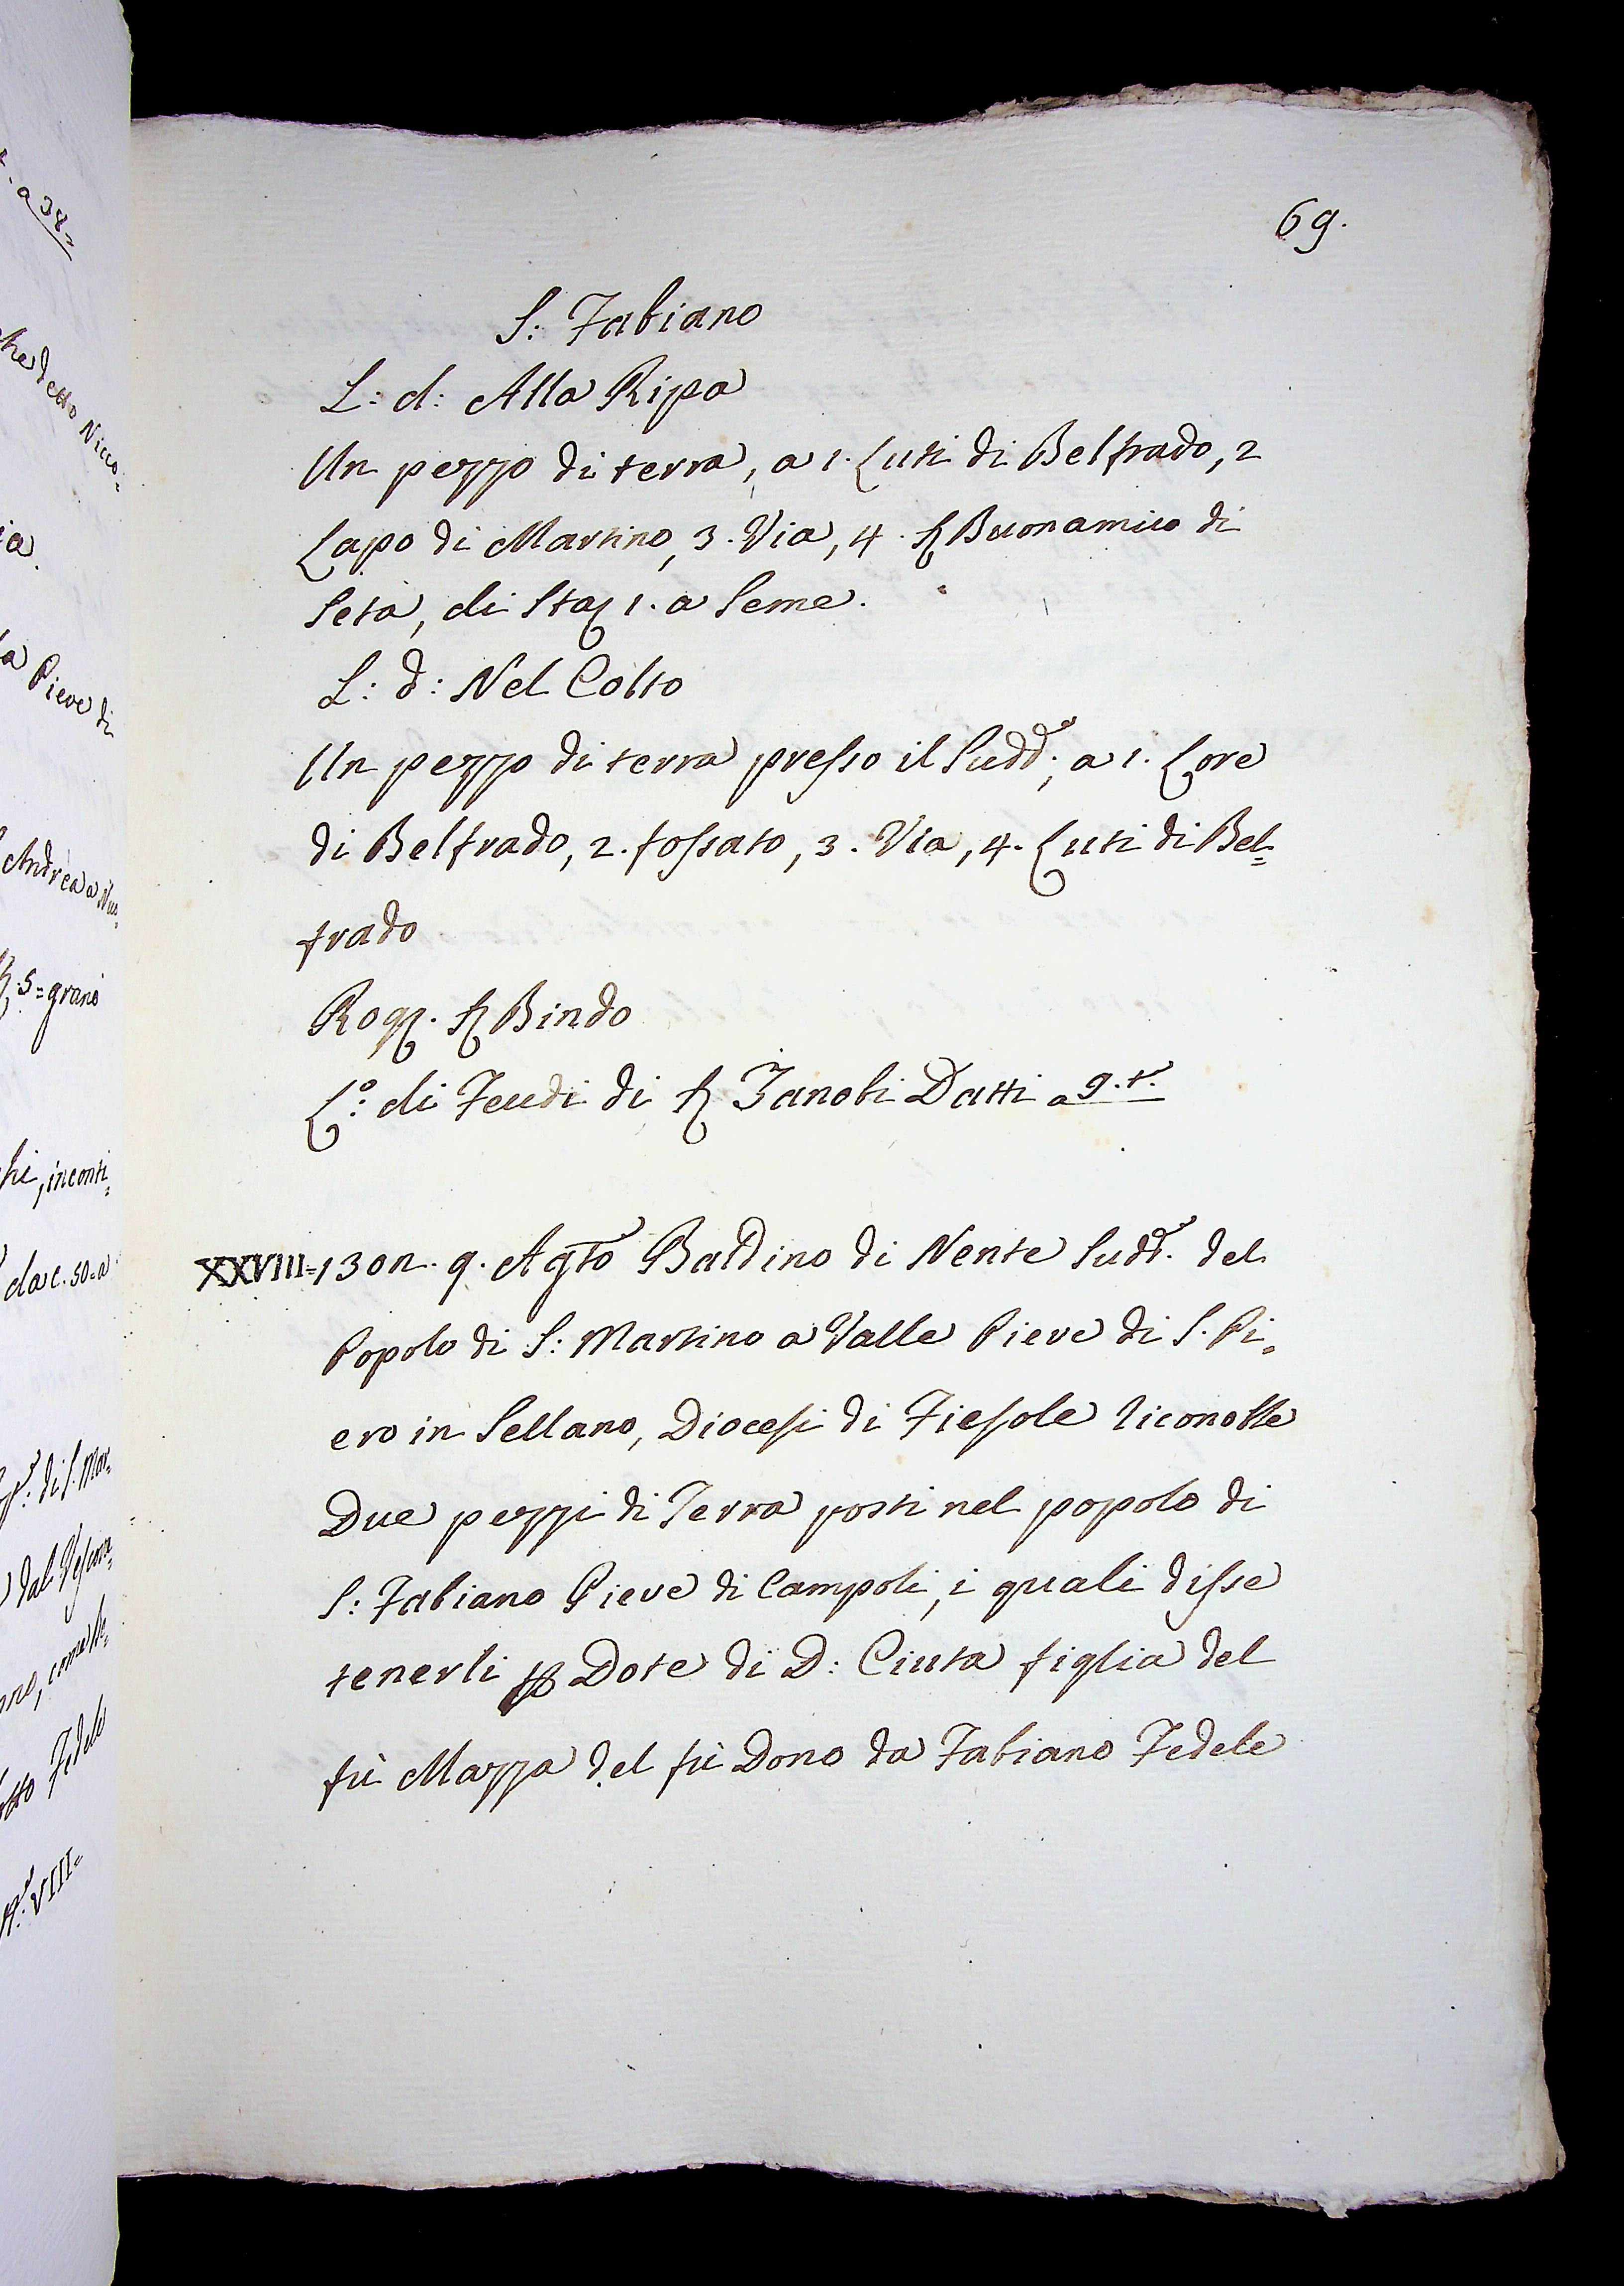 69.
S: Fabiano
L: d: Alla Ripa
Un pezzo di terra, a 1. Luti di Belfrado, 2
Lapo di Martino, 3. Via, 4. Buonamico di
Seta, di Sta 1. a Seme.
L: d: Nel Colto
Un pezzo di terra presso il Sudd.º, a 1. Lore
di Belfrado, 2. fossato, 3. Via, 4. Luti di Bel=
frado
Rog. Bindo
L.º di Feudi di Zanobi Datti a 9. t.
XXVIII= 130n. 9. Agto Baldino di Nente Sudd.º del
Popolo di S: Martino a Valle Pieve di S. Pi=
ero in Sellano, Diocesi di Fiesole riconobbe
Due pezzi di Terra posti nel popolo di
S: Fabiano Pieve di Campoli, i quali disse
tenerli Dote di D: Ciuta figlia del
fù Mazza del fù Dono da Fabiano Fedele
a 38=
detto Nicco=
ia.
la Pieve di
Andrea a
5= grano
hi, in conti=
da c. 50. a
di S. Mar=
dal Vescova=
Fedele
VIII=